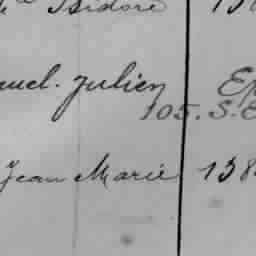 Isidore 13
uel. Julien Ep
105. S.E
Jean Marie 138